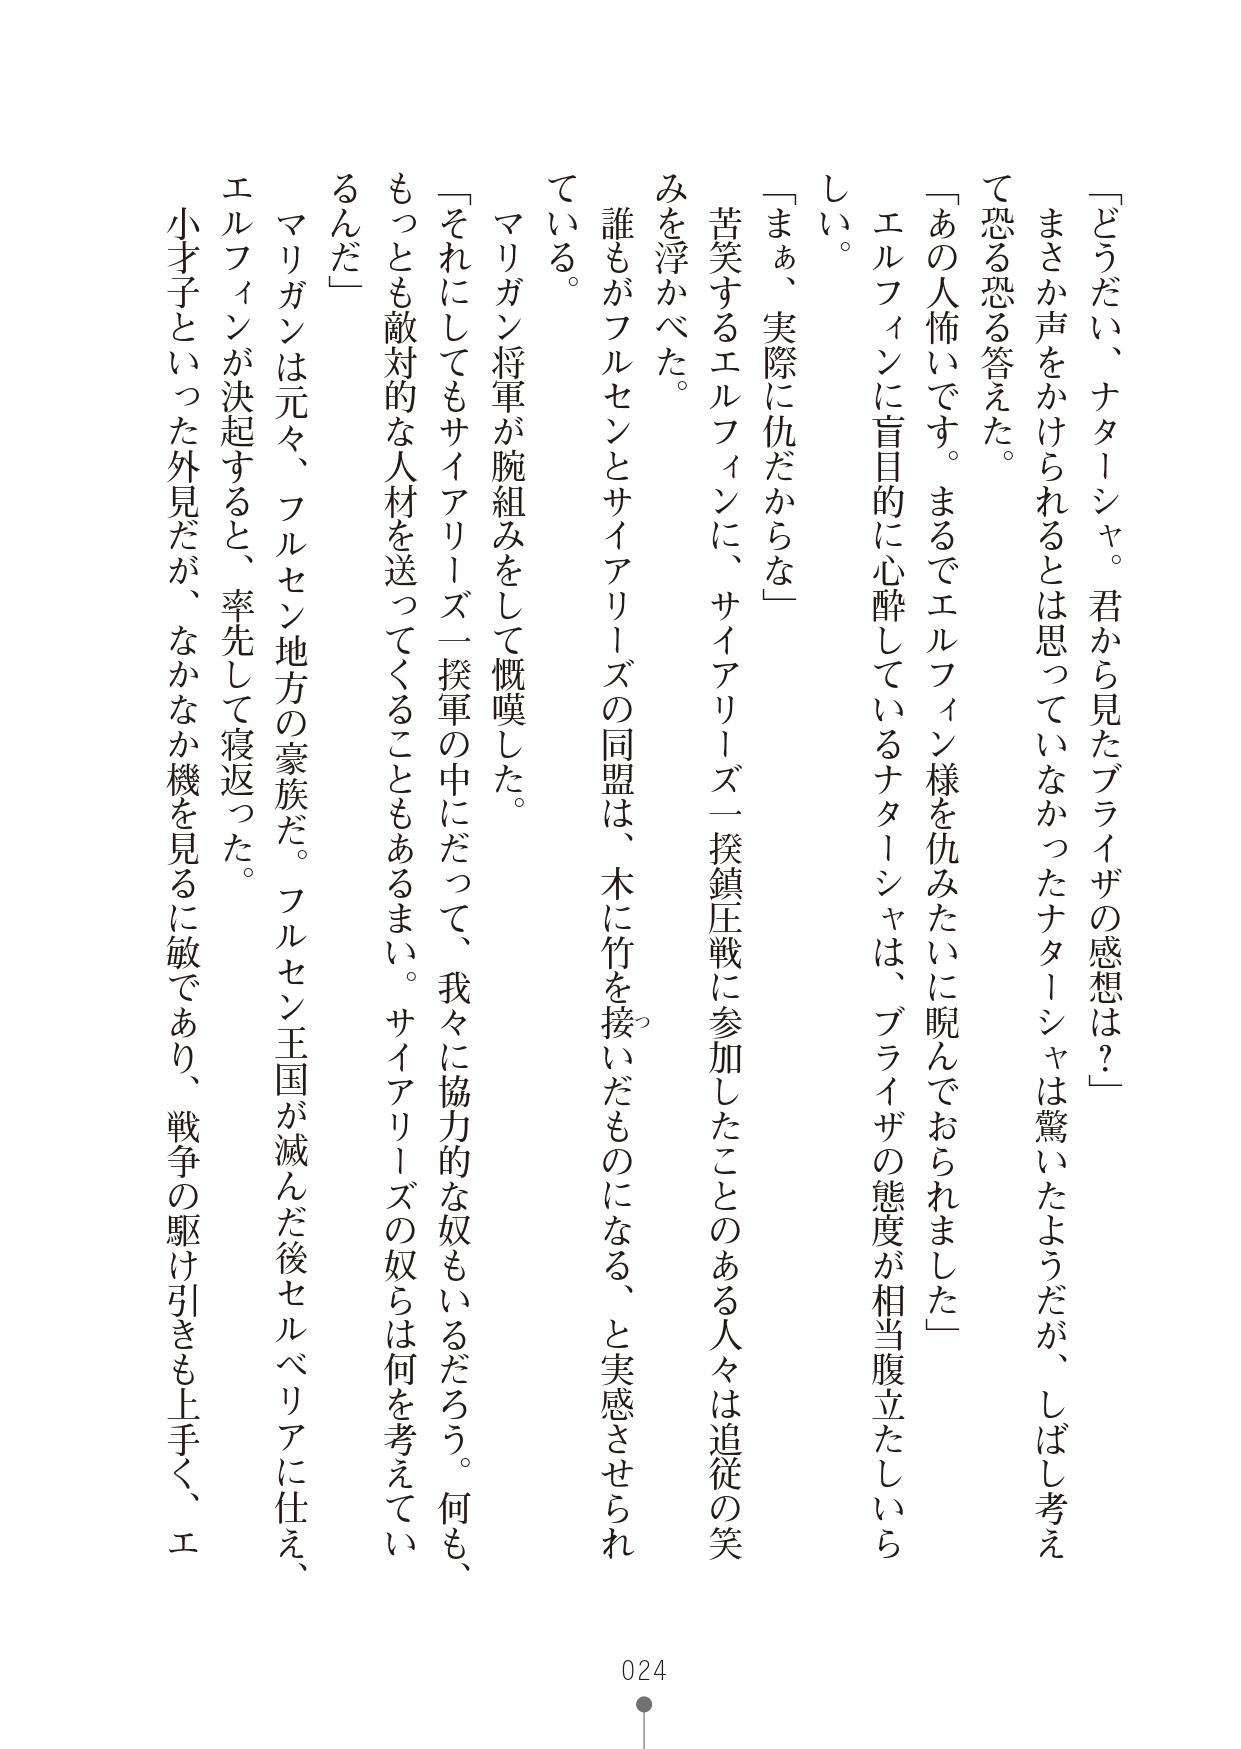 「どうだい、ナターシャ。君から見たブライザの感想は？」
まさか声をかけられるとは思っていなかったナターシャは驚いたようだが、しばし考え
て恐る恐る答えた。
「あの人怖いです。まるでエルフィン様を仇みたいに睨んでおられました」
エルフィンに盲目的に心酔しているナターシャは、ブライザの態度が相当腹立たしいら
しい。
「まぁ、実際に仇だからな」
苦笑するエルフィンに、サイアリーズ一揆鎮圧戦に参加したことのある人々は追従の笑
みを浮かべた。
誰もがフルセンとサイアリーズの同盟は、木に竹を接いだものになる、と実感させられ
つ
ている。
マリガン将軍が腕組みをして慨嘆した。
「それにしてもサイアリーズ一揆軍の中にだって、我々に協力的な奴もいるだろう。何も、
もっとも敵対的な人材を送ってくることもあるまい。サイアリーズの奴らは何を考えてい
るんだ」
マリガンは元々、フルセン地方の豪族だ。フルセン王国が滅んだ後セルベリアに仕え、
エルフィンが決起すると、率先して寝返った。
小才子といった外見だが、なかなか機を見るに敏であり、戦争の駆け引きも上手く、エ
024